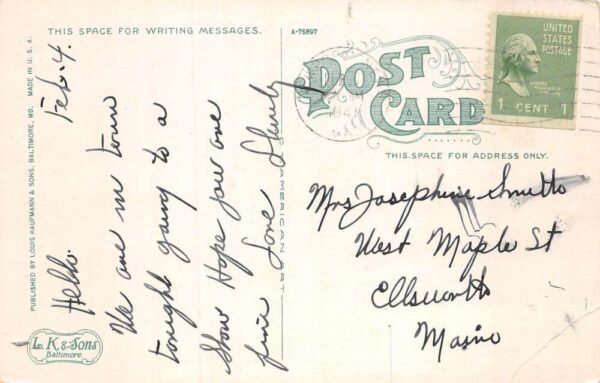 THIS SPACE FOR WRITING MESSAGES.
A-75897
PUBLISHED BY LOUIS KAUFMANN & SONS, BALTIMORE, MD. MADE IN U. S. A.
L. K & Sons
Baltimore
Feb. 4.
Hello.
We are in town
tonight going to a
show Hope you are
fine Love Shirley
POST
CARD
THIS SPACE FOR ADDRESS ONLY.
UNITED
STATES
POSTAGE
1 CENT 1
Mrs Josephine Smith
West Maple St
Ellsworth
Maine